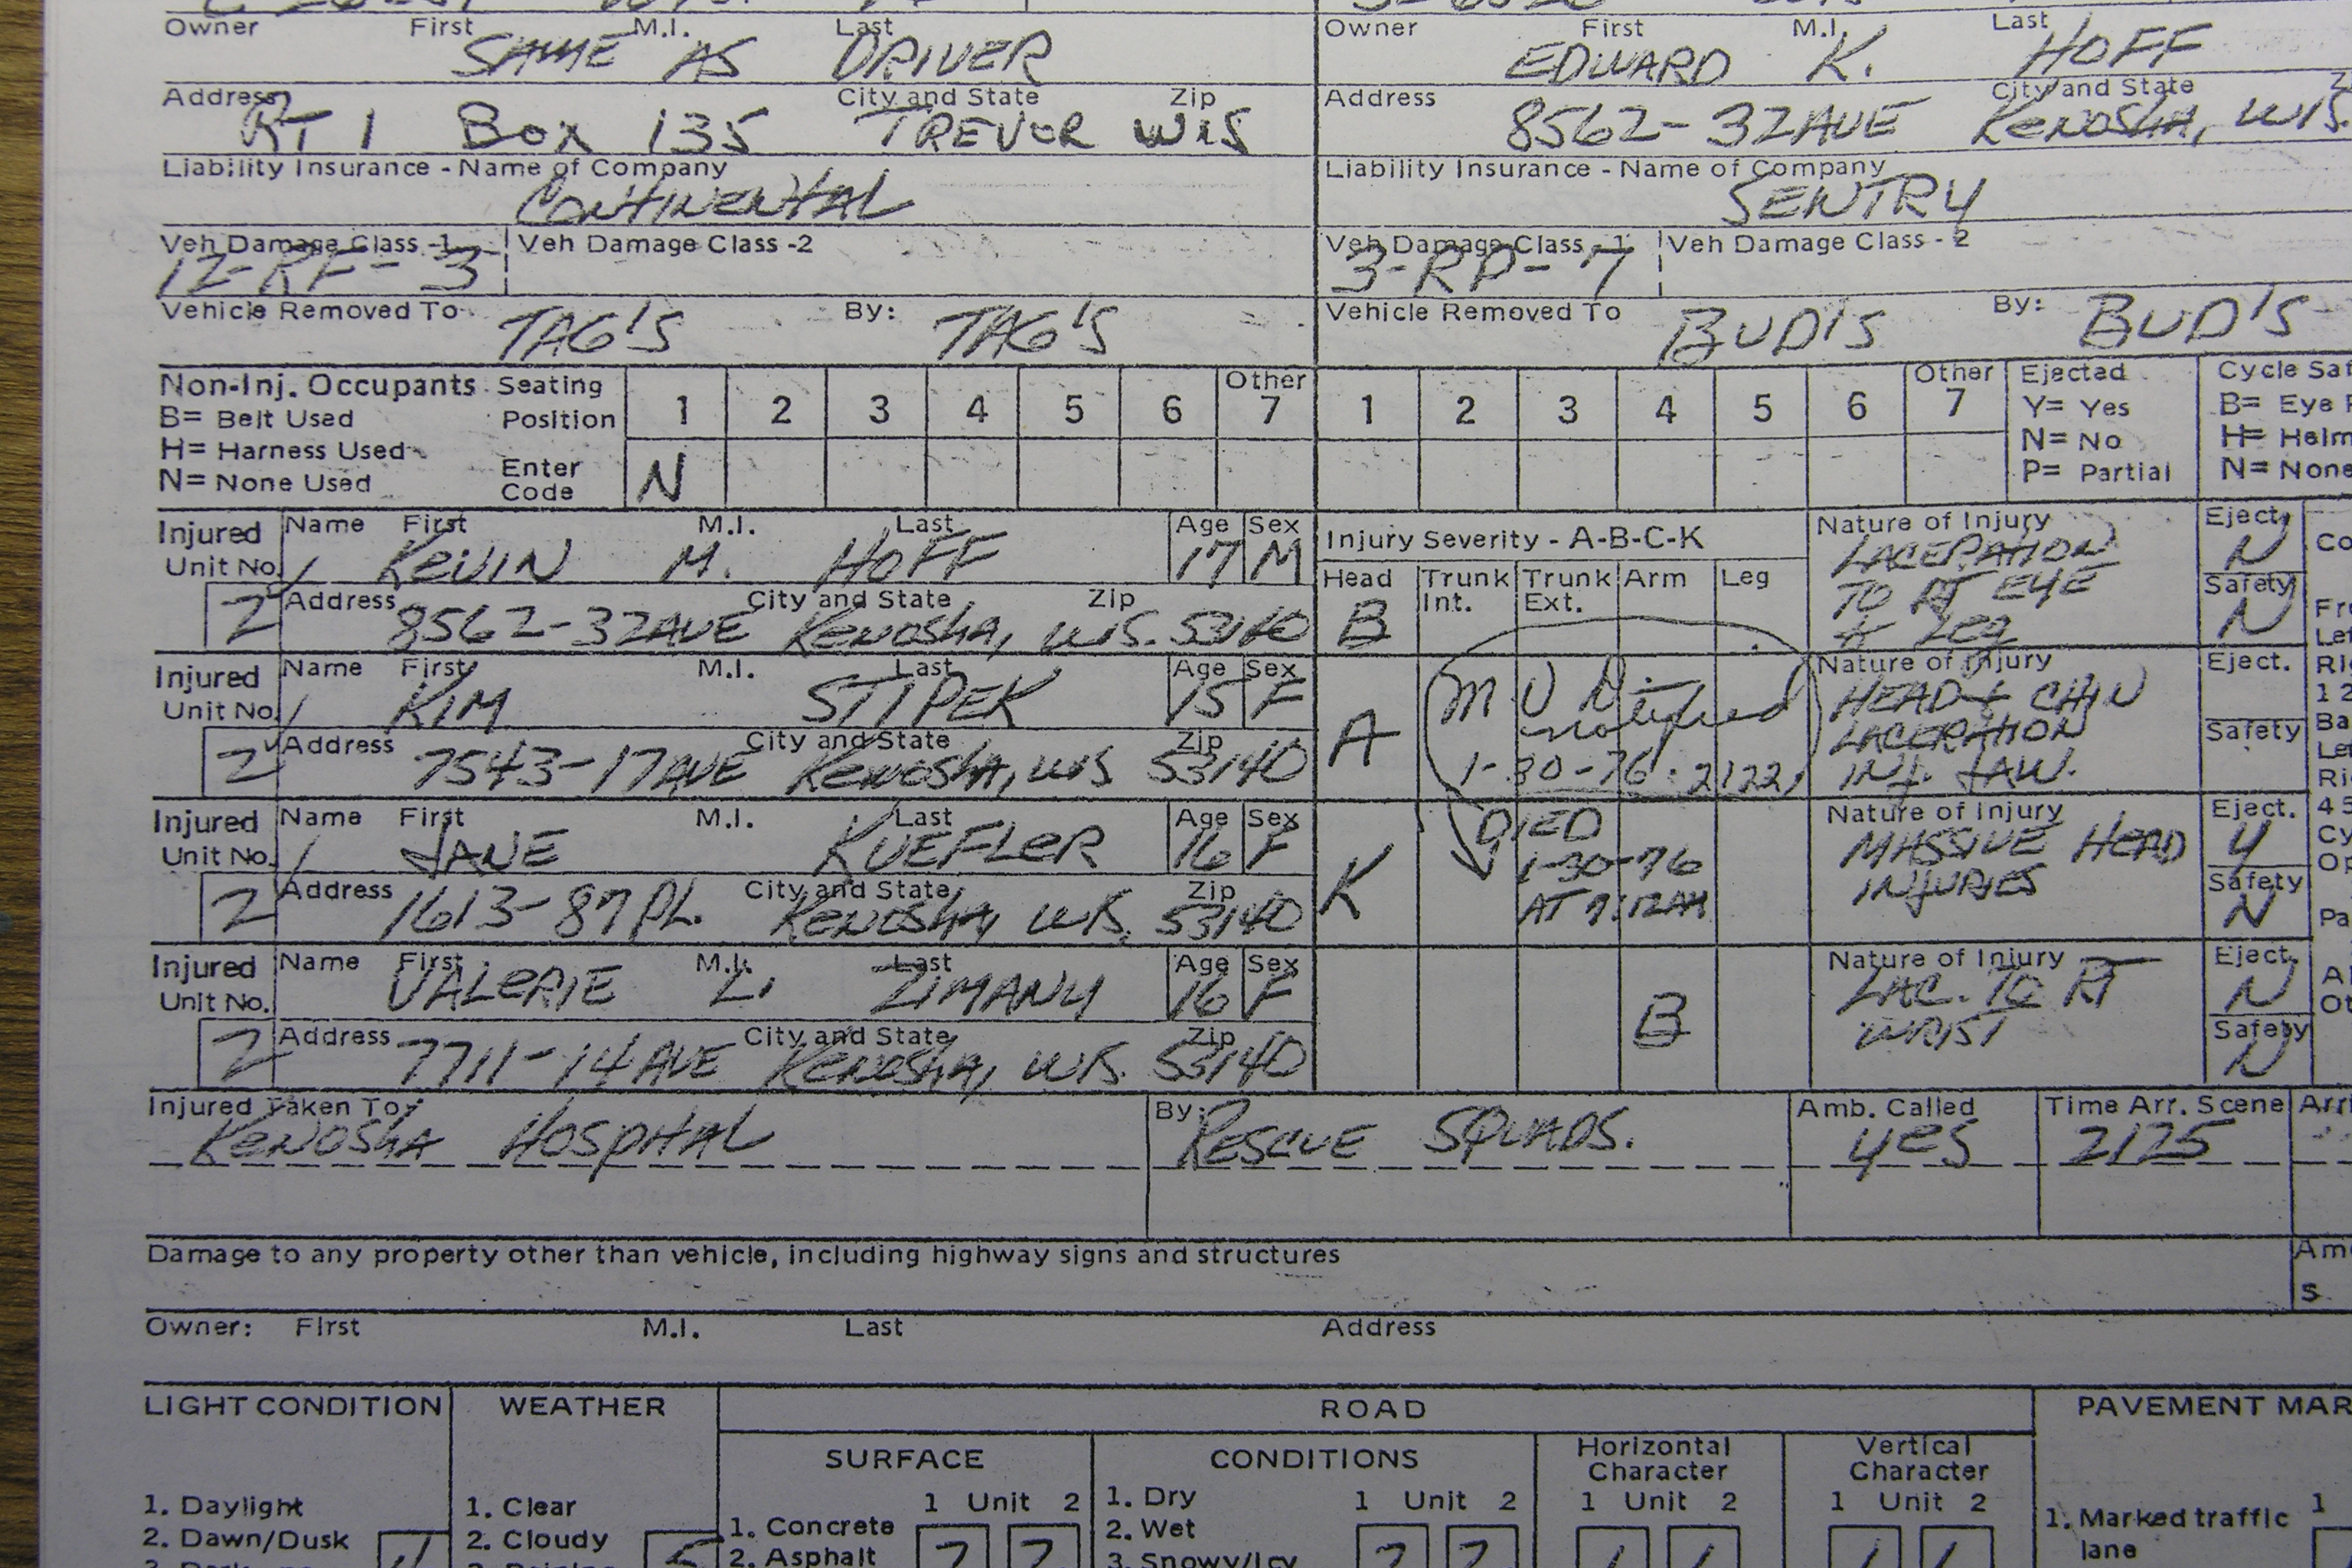 Owner First M.I. Last Owner First M.I. Last
SAME AS DRIVER EDWARD K. HOFF
Address City and State Zip Address City and State
RT 1 Box 135 TREVOR WIS 8562-32AVE KENOSHA, WIS.
Liability Insurance - Name of Company Liability Insurance - Name of Company
CONTINENTAL SENTRY
Veh Damage Class -1 Veh Damage Class -2 Veh Damage Class - 1 Veh Damage Class - 2
12-RF-3 3-RP-7
Vehicle Removed To TAG'S By: TAG'S Vehicle Removed To BUD'S By: BUD'S
Non-Inj. Occupants Seating Position 1 2 3 4 5 6 Other 7 1 2 3 4 5 6 Other 7 Ejected Cycle
B= Belt Used Y= Yes B= Eye
H= Harness Used N= No H=
N= None Used Enter Code N P= Partial N= None
Injured Unit No. Name First M.I. Last Age Sex Injury Severity - A-B-C-K Nature of Injury Eject.
KEVIN M. HOFF 17 M LACERATION N
Head Trunk Int. Trunk Ext. Arm Leg
2 Address City and State Zip TO RT EYE Safety
8562-32AVE KENOSHA, WIS. 53140 B + LEG N
Injured Unit No. Name First M.I. Last Age Sex Nature of Injury Eject.
KIM STIPEK 15 F M V D. HEAD + CHIN
notified
2 Address City and State Zip A LACERATION Safety
7543-17AVE KENOSHA, WIS 53140 1-30-76 2122 INJ. JAW.
Injured Unit No. Name First M.I. Last Age Sex DIED Nature of Injury Eject.
JANE KUEFLER 16 F K 1-30-76 MASSIVE HEAD Y
2 Address City and State Zip INJURIES Safety
1613-87 PL. KENOSHA, WIS. 53140 N
Injured Unit No. Name First M.I. Last Age Sex Nature of Injury Eject.
VALERIE L. ZIMANY 16 F LAC. TO RT N
2 Address City and State Zip B WRIST Safety
7711-14AVE KENOSHA, WIS. 53140 N
Injured Taken To: By: Amb. Called Time Arr. Scene
KENOSHA HOSPITAL RESCUE SQUADS. YES 2125
Damage to any property other than vehicle, including highway signs and structures
Owner: First M.I. Last Address
LIGHT CONDITION WEATHER ROAD PAVEMENT
SURFACE CONDITIONS Horizontal Character Vertical Character
1. Daylight 1. Clear 1 Unit 2 1. Dry 1 Unit 2 1 Unit 2 1 Unit 2 1. Marked traffic lane 1
2. Dawn/Dusk 2. Cloudy 1. Concrete 2. Wet
2. Asphalt 3. Snowy/Icy